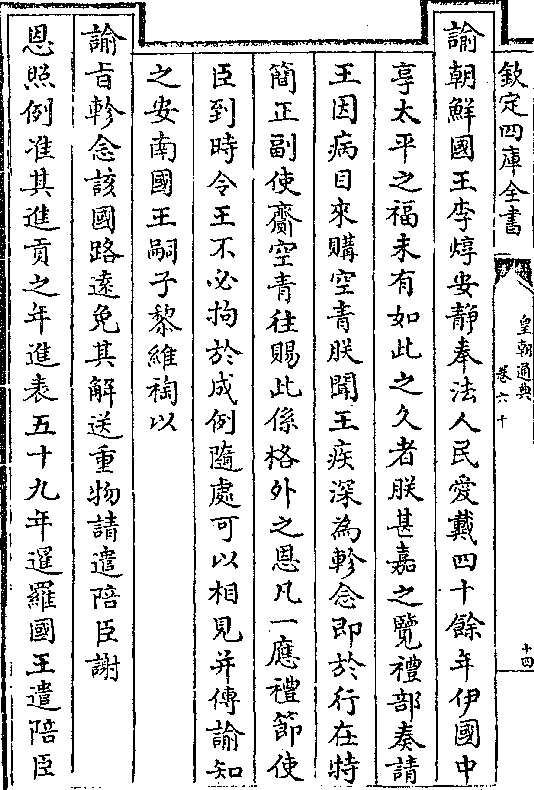 欽定四庫全書
皇朝通典
卷六十
十四
諭朝鮮國王李焞安靜奉法人民愛戴四十餘年伊國中
享太平之福未有如此之久者朕甚嘉之覽禮部奏請
王因病目來購空青朕聞王疾深為軫念即於行在特
簡正副使齎空青往賜此係格外之恩凡一應禮節使
臣到時令王不必拘於成例隨處可以相見并傳諭知
之安南國王嗣子黎維祹以
諭旨軫念該國路遠免其解送重物請遣陪臣謝
恩照例准其進貢之年進表五十九年暹羅國王遣陪臣